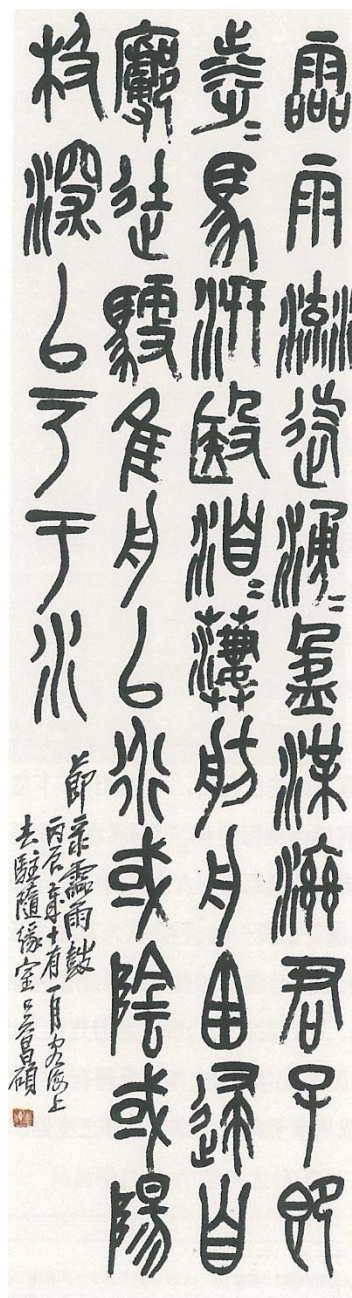 霝雨流迄湧=盈渫濟君子即
涉=馬汧殹洎=萋舫舟西逮自
廓徒馭隹舟以行或陰或陽
极深以戶于水
節录霝雨鼓
丙辰歲十有一月客海上
去駐隨緣室吳昌碩